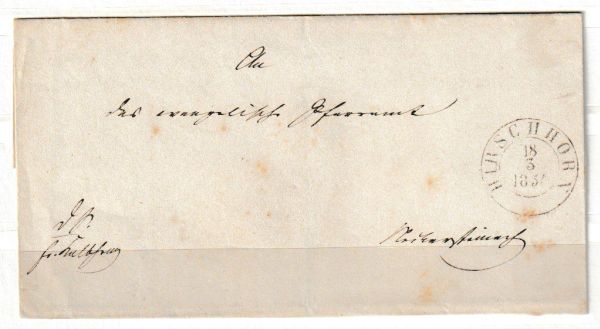 An
das evangelische Pfarramt
HIRSCHHORN
18
3
185
d. S.
Neckarsteinach